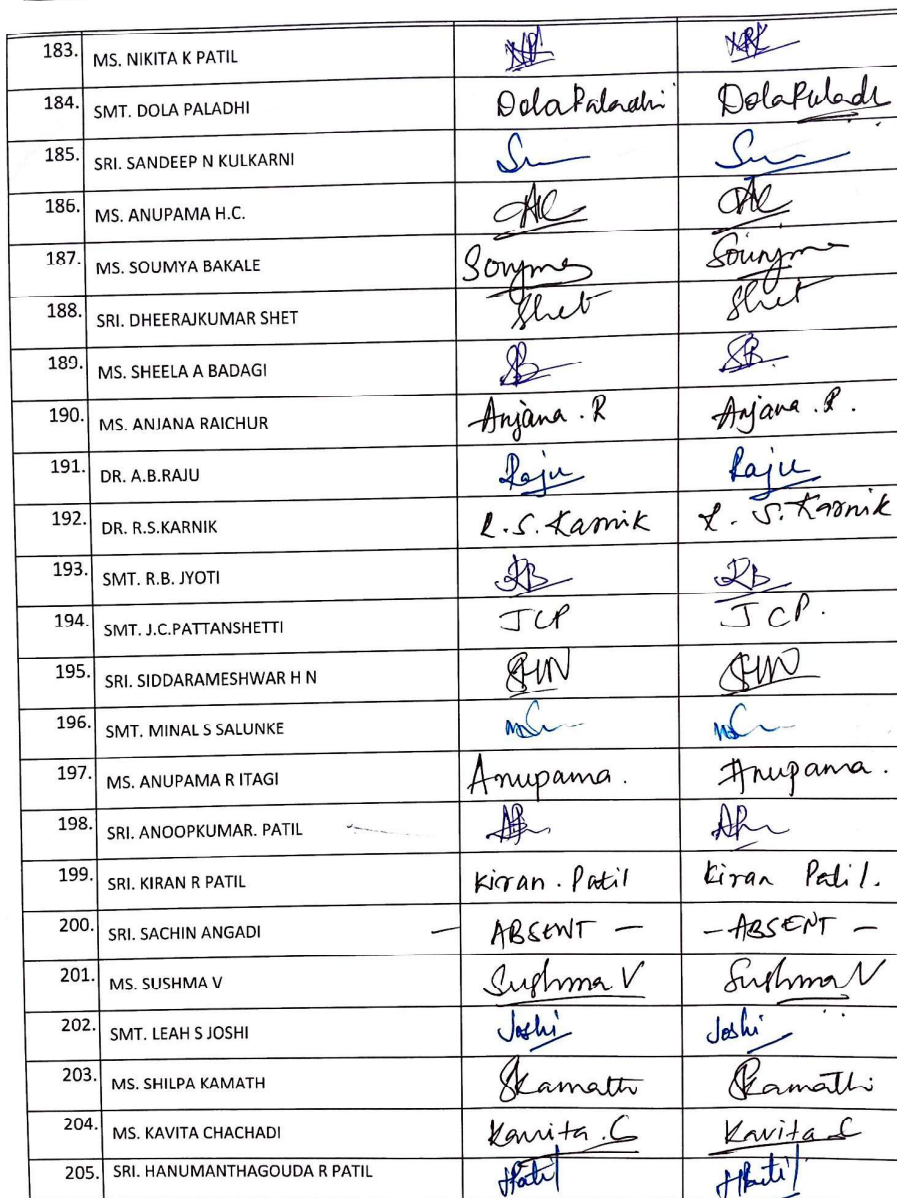 183. MS. NIKITA K PATIL
184. SMT. DOLA PALADHI Dola Paladhi Dola Paladi
185. SRI. SANDEEP N KULKARNI
186. MS. ANUPAMA H.C.
187. MS. SOUMYA BAKALE
188. SRI. DHEERAJKUMAR SHET Shet Shet
189. MS. SHEELA A BADAGI SB SB.
190. MS. ANJANA RAICHUR Anjana . R Anjana . R.
191. DR. A.B.RAJU Raju Raju
192. DR. R.S.KARNIK R.S. Karnik R. S. Karnik
193. SMT. R.B. JYOTI RB RB
194. SMT. J.C.PATTANSHETTI JCP JCP.
195. SRI. SIDDARAMESHWAR H N SHN SHN
196. SMT. MINAL S SALUNKE
197. MS. ANUPAMA R ITAGI Anupama. Anupama.
198. SRI. ANOOPKUMAR. PATIL
199. SRI. KIRAN R PATIL Kiran . Patil Kiran Patil.
200. SRI. SACHIN ANGADI — ABSENT — — ABSENT —
201. MS. SUSHMA V Sushma V Sushma V
202. SMT. LEAH S JOSHI Joshi Joshi
203. MS. SHILPA KAMATH SKamath SKamath
204. MS. KAVITA CHACHADI Kavita . C Kavita C
205. SRI. HANUMANTHAGOUDA R PATIL HPatil HPatil